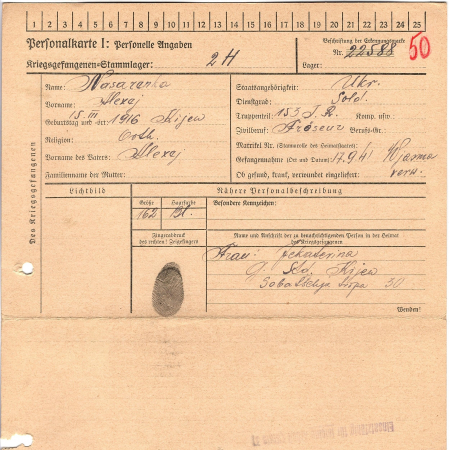 1 2 3 4 5 6 7 8 9 10 11 12 13 14 15 16 17 18 19 20 21 22 23 24 25
Personalkarte I: Personelle Angaben
Beschriftung der Erkennungsmarke
Kriegsgefangenen-Stammlager: 2H
Nr. 22588 50
Lager:
Des Kriegsgefangenen
Name: Nasarenko
Vorname: Alexej
Geburtstag und -ort: 15 III 1916 Kijew
Religion: Orth.
Vorname des Vaters: Alexej
Familienname der Mutter:
Staatsangehörigkeit: Ukr.
Dienstgrad: Sold.
Truppenteil: 153 J. R. Komp. usw.:
Zivilberuf: Berufs-Gr.:
Matrikel Nr. (Stammrolle des Heimatstaates):
Gefangennahme (Ort und Datum): 17.9.41
Ob gesund, krank, verwundet eingeliefert:
Lichtbild
Nähere Personalbeschreibung
Größe
Haarfarbe
Besondere Kennzeichen:
162
Bl.
Fingerabdruck
des rechten! Zeigefingers
Name und Anschrift der zu benachrichtigenden Person in der Heimat
des Kriegsgefangenen
Frau: Jekaterina
Kijew
30
Wenden!